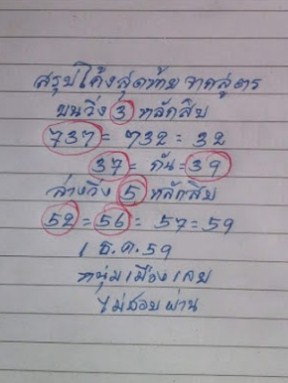 สรุปโค้งสุดท้าย จากสูตร
บนวิ่ง 3 หลักสิบ
737 = 732 = 32
37 = กัน = 39
ล่างวิ่ง 5 หลักสิบ
52 = 56 = 57 = 59
1 ธ.ค. 59
หนุ่มเมืองเลย
ไม่สอบผ่าน